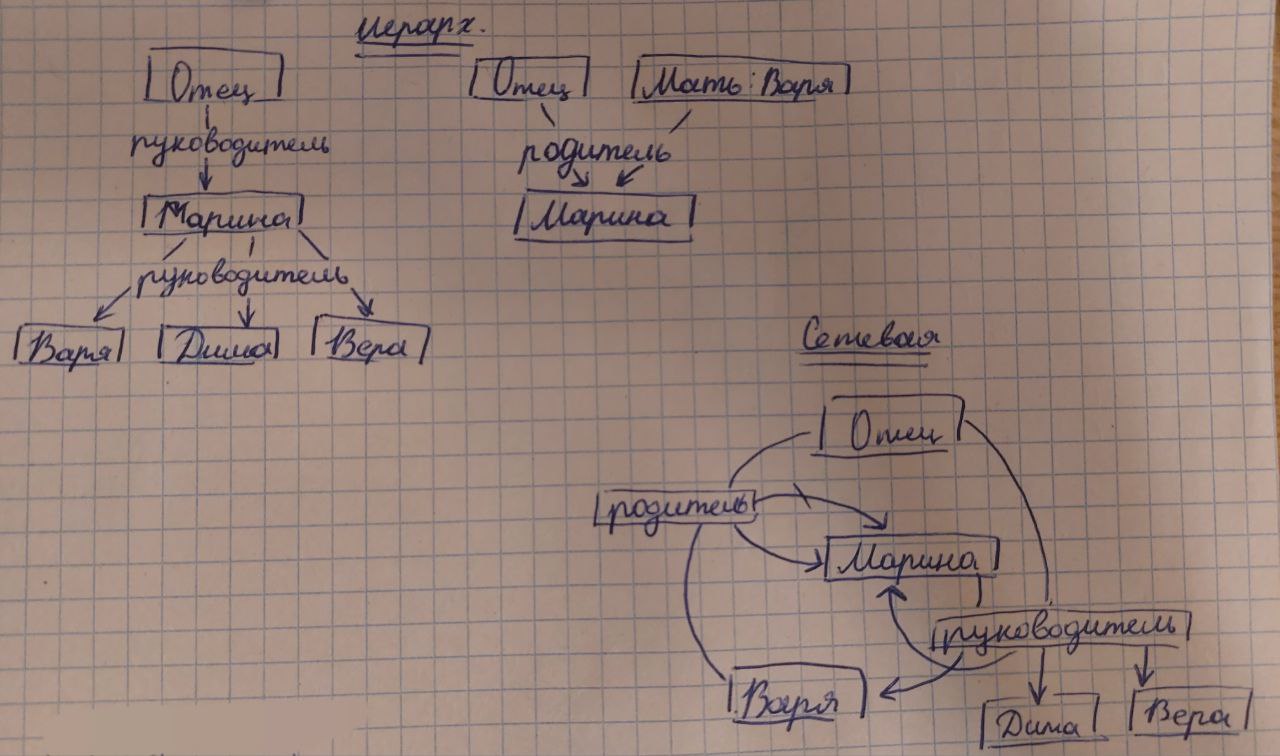 иерарх.
Отец
руководитель
Марина
руководитель
Варя Дима Вера
Отец Мать: Варя
родитель
Марина
Сетевая
Отец
родитель
Марина
руководитель
Варя
Дима Вера